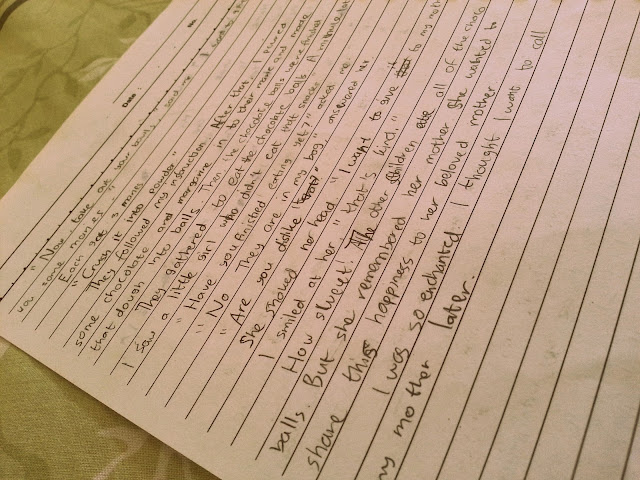 No :
Date :
"Now take out your bowl", said me. I
you some maries."
Each get 3 maries
"Crush it into powder."
They followed my instruction. After that, I pured
some chocolate and margarine in to their maries and made
that dough into balls. Then the chocolate balls were finished
They gathered to eat the chocolate balls. A minute
I saw a little girl who didn't eat that snacks.
"Have you finished eating yet?" asked me.
"No. They are in my bag," answered her
"Are you dislike it?"
She shaked her head. "I want to give it to my mother
I smiled at her, "that's kind."
How sweet! The other children ate all of the choco
balls. But she remembered her mother. She wanted to
share this happiness to her beloved mother.
I was so enchanted. I thought I want to call
my mother later.